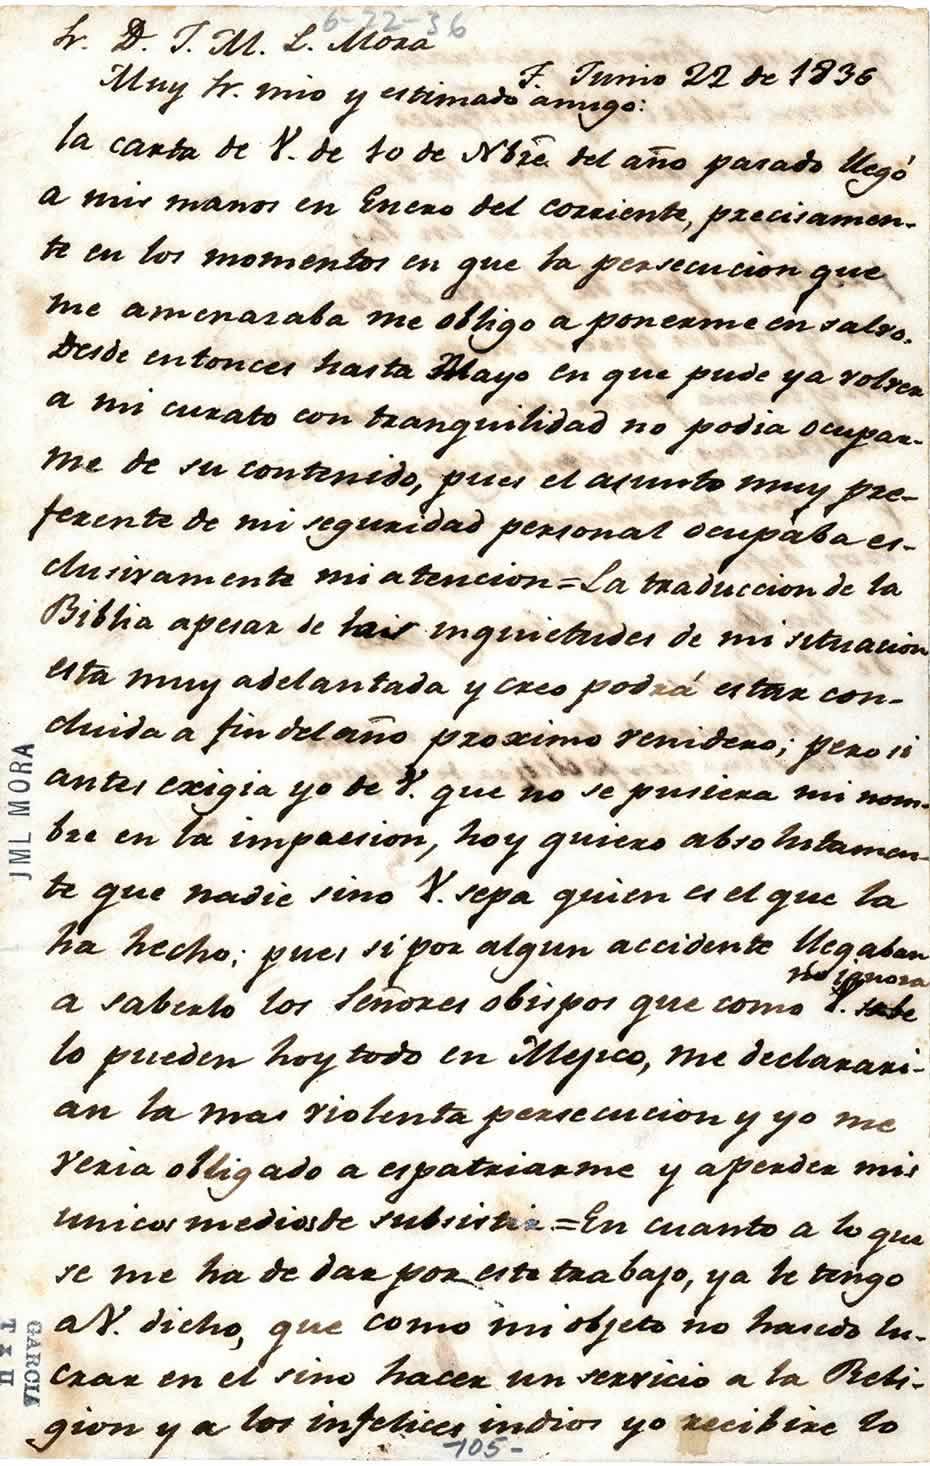 6-22-36
Sr. D. J. M. L. Mora
F. Junio 22 de 1836
Muy Sr. mio y estimado amigo:
la carta de V. de 10 de Nbre. del año pasado llegó
a mis manos en Enero del corriente, precisamen-
te en los momentos en que la persecucion que
me amenazaba me obligo a ponerme en salvo.
Desde entonces hasta Mayo en que pude ya volver
a mi curato con tranquilidad no podia ocupar-
me de su contenido, pues el asunto muy pre-
ferente de mi seguridad personal ocupaba es-
clusivamente mi atencion=La traduccion de la
Biblia apesar de las inquietudes de mi situacion
esta muy adelantada y creo podrá estar con-
cluida a fin del año proximo venidero; pero si
antes exigia yo de V. que no se pusiera mi nom-
bre en la impresion, hoy quiero absolutamen-
te que nadie sino V. sepa quien es el que la
ha hecho; pues si por algun accidente llegaban
no ignora
a saberlo los Señores obispos que como V. sabe
lo pueden hoy todo en Mejico, me declarari-
an la mas violenta persecucion y yo me
veria obligado a espatriarme y a perder mis
unicos medios de subsistir.=En cuanto a lo que
se me ha de dar por este trabajo, ya le tengo
a V. dicho, que como mi objeto no ha sido lu-
crar en el sino hacer un servicio a la Reli-
gion y a los infelices indios yo recibire lo
-105-
JML MORA
GARCIA